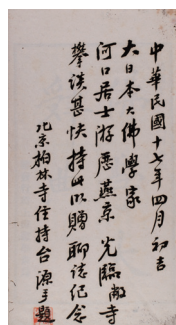 中華民國十七年四月初吉
大日本大佛學家
河口居士游歷燕京 光臨敝寺
攀談甚快持此以贈聊誌紀念
北京柏林寺住持台源手題